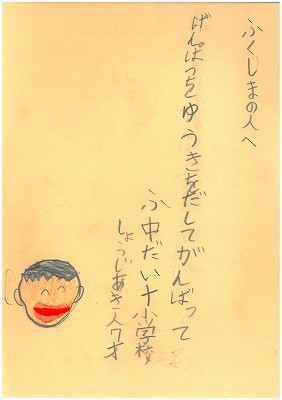 ふくしまの人へ
げんぱつをゆうきをだしてがんばって
ふ中だい十小学校
しょうじあき人7才